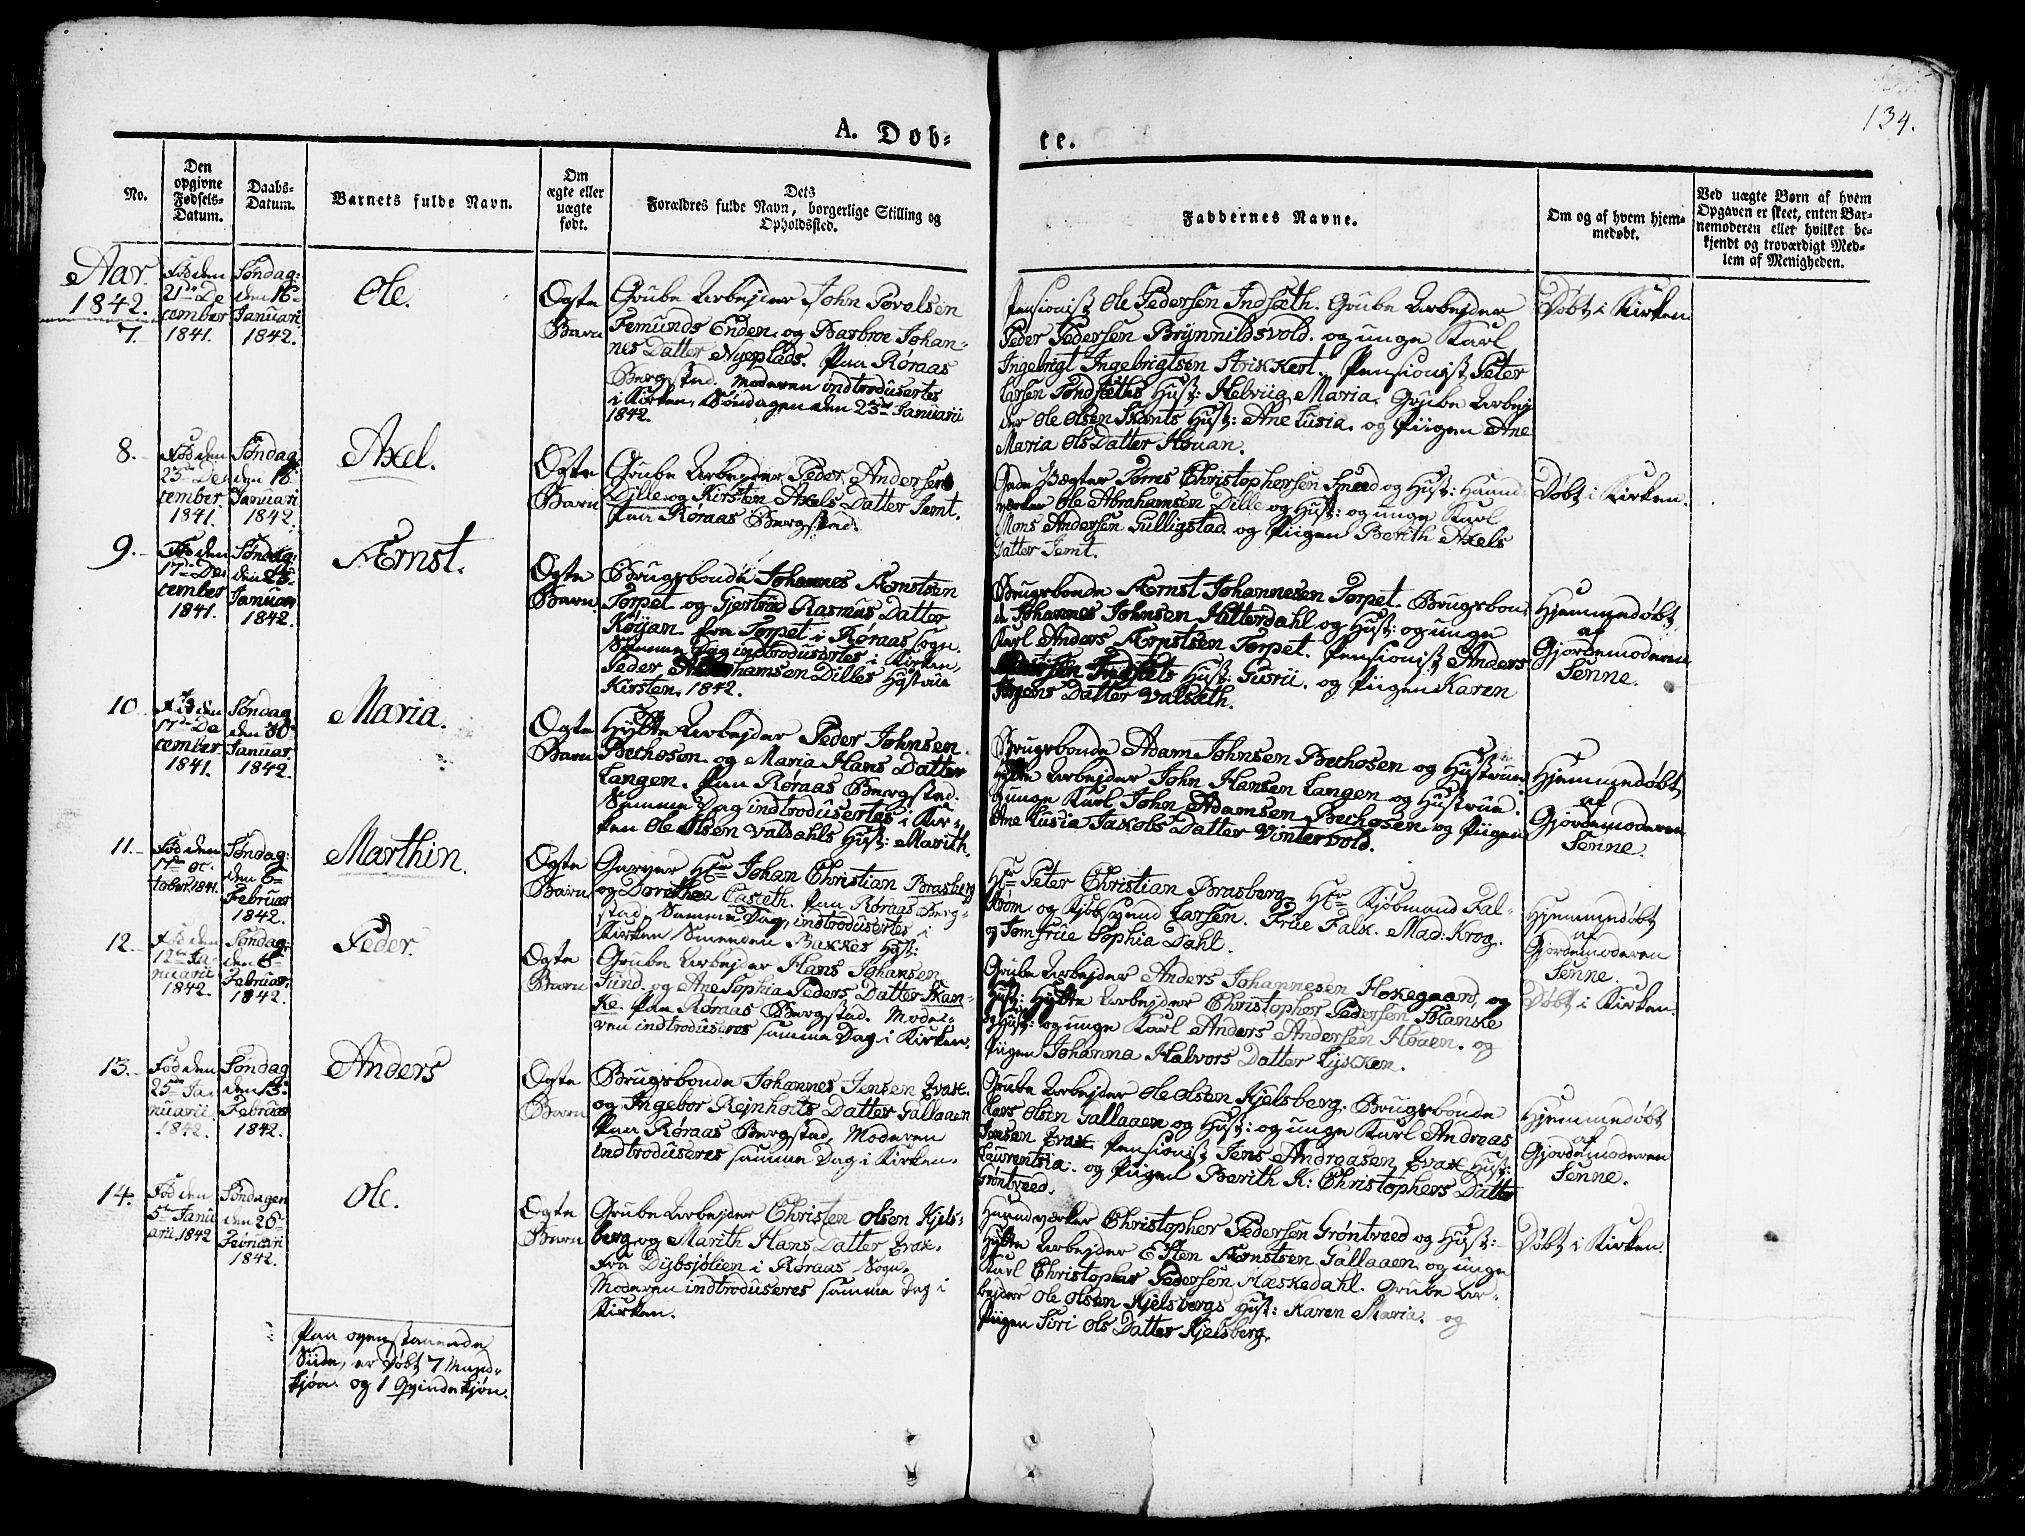 134.
A. Døb-
te.
No.
Den opgivne Fødsels-Datum.
Daabs-Datum.
Barnets fulde Navn.
Om ægte eller uægte født.
Dets Forældres fulde Navn, borgerlige Stilling og Opholdssted.
Faddernes Navne.
Om og af hvem hjemmedøbt.
Ved uægte Børn af hvem Opgaven er skeet, enten Barnemoderen eller hvilket bekjendt og troværdigt Medlem af Menigheden.
Aar
1842.
7.
Fød den
21de De
cember
1841.
Søndag:
den 16de
Januari
1842.
Ole.
Ægte
Barn
Grube Arbejder John
Femunds Enden og Basbroe Johan-
nes Datter Nyeplads. Paa Røraas
Bergstad. Moderen indtrodusertes
i Kirken, Søndagen den 23de Januarii
1842.
Pensionist Ole Pedersen Indsæth. Grube Arbejder
Peder Pedersen Brynnildsvold. og unge Karl
Ingebrigt Ingebrigtsen Strikkert. Pensionist Peter
Larsen Tondsæths Hust: Helviig Maria, Grube Arbej
der Ole Olsen Skants Hust: Ane Lusia. og Piigen Ane
Maria Ols Datter Houan.
Døbt i Kirken
8.
Fød den
23de De
cember.
1841.
Søndag
den 16
Januari
1842.
Axel.
Ægte
Barn
Grube Arbejder Peder Andersen
Dille og Kirsten Axels Datter Jemt.
Paa Røraas Bergstad.
Gade Vægter Tørres Christophersen Sneed og Hust: Haand
værker Ole Abrahamsen Dille og Hust: og unge Karl
Mons Andersen Gulligstad og Piigen Berith Axels
Datter Jemt.
Døbt i Kirken.
9.
Fød den
17de De
cember
1841.
Søndag:
den 23
Januari
1842.
Ærnst.
Ægte
Barn
Brugsbonde Johannes Ærnstsen
Torpet og Gjertrud Rasmus Datter
Køjan. fra Torpet i Røraas Sogn.
Samme Dag indtrodusertes i Kirken,
Peder Abrahamsen Dilles Hystrue
Kirsten. 1842.
Brugsbonde Ærnst Johannesen Torpet. Brugsbon
de Johannes Johnsen Hitterdahl og Hust: og unge
Karl Anders Ærnstsen Torpet. Pensionist Anders
Indsets Hust: Gurii. og Piigen Karen
Jørgens Datter Valsæth.
Hjemmedøbt
af
Gjordemoderen
Senne.
10
Fød den
17de De
cember
1841.
Søndag
den 30
Januar
1842.
Maria.
Ægte
Barn
Hytte Arbejder Peder Johnsen
Bechosen. og Maria Hans Datter
Langen. Paa Røraas Bergstad.
Samme Dag indtrodusertes i Kir-
ken Ole Olsen Valdahls Hust: Marith.
Brugsbonde Adam Johnsen Bechosen og Hustrue
Hytte Arbejder John Hansen Langen og Hustrue.
og unge Karl John Adamsen Bechosen og Piigen
Ane Lusia Jakobs Datter Vintervold.
Hjemmedøbt
af
Gjordemoderen
Senne.
11.
Fød den
17de Oc
tober 1841.
Søndag:
den 6te
Februar
1842.
Marthin.
Ægte
Barn
Garver Hr Johan Christian Brasberg
og Dorithea Caseth. Paa Røraas Berg-
stad, Samme Dag, indtrodusertes i
Kirken Smeeden Bakkes Hust:
Hr Peter Christian Brasberg. Hr Kjøbmand Fal-
strøm. og Kjøbsvend Larsen. Frue Falk. Mad: Krog.
og Jomfrue Sophia Dahl.
Hjemmedøbt
af
Gjordemoderen
Senne.
12.
Fød den
12te Ja-
nuarii
1842.
Søndag:
den 6te
Februar.
1842.
Peder.
Ægte
Barn
Grube Arbejder Hans Johansen
Sund. og Ane Sophia Peders Datter Skan-
ke. Paa Røraas Bergstad. Mode-
ren indtroduseres samme Dag i Kirken.
Grube Arbejder Anders Johannesen Hokegaard, og
Hust: Hytte Arbejder Christopher Pedersen Skanke
og Hust: og unge Karl Anders Andersen Houen. og
Piigen Johanna Halvors Datter Lykken.
Døbt i Kirken.
13.
Fød den
25de Ja
nuarii.
1842.
Søndag
den 13
Februar
1842.
Anders
Ægte
Barn
Brugsbonde Johannes Jensen Evax.
og Ingebor Rejnholts Datter Gallaaen
Paa Røraas Bergstad, Moderen
indtroduseres samme Dag i Kirken.
Grube Arbejder Ole Olsen Kjelsberg. Brugsbonde
Lars Olsen Gallaaen og Hust: og unge Karl Andreas
Jensen Evax Pensionist Jens Andreasen Evax Hust:
Laurentsia. og Piigen Berith K: Christophers Datter
Grøntveed.
Hjemmedøbt
af
Gjordemoderen
Senne.
14.
Fød den
5te Janu
arii. 1842
Søndagen
den 26de
Februari
1842.
Ole.
Ægte
Barn
Grube Arbejder Christen Olsen Kjels-
berg og Marith Hans Datter Evax.
fra Dijbsjølien i Røraas Sogn.
Moderen indtroduseres samme Dag i
Kirken.
Haandværker Christopher Pedersen Grøntveed og Hust:
Hytte Arbejder Esten Ærnstsen Gallaaen og unge
Karl Christopher Pedersen Hæskedahl. Grube Ar-
bejder Ole Olsen Kjelsbergs Hust: Karen Maria. og
Piigen Siri Ols Datter Kjelsberg.
Døbt i Kirken.
Paa ovenstaaende
Siide, er Døbt 7 Mand-
kjøn. og 1 Qvindekjøn.